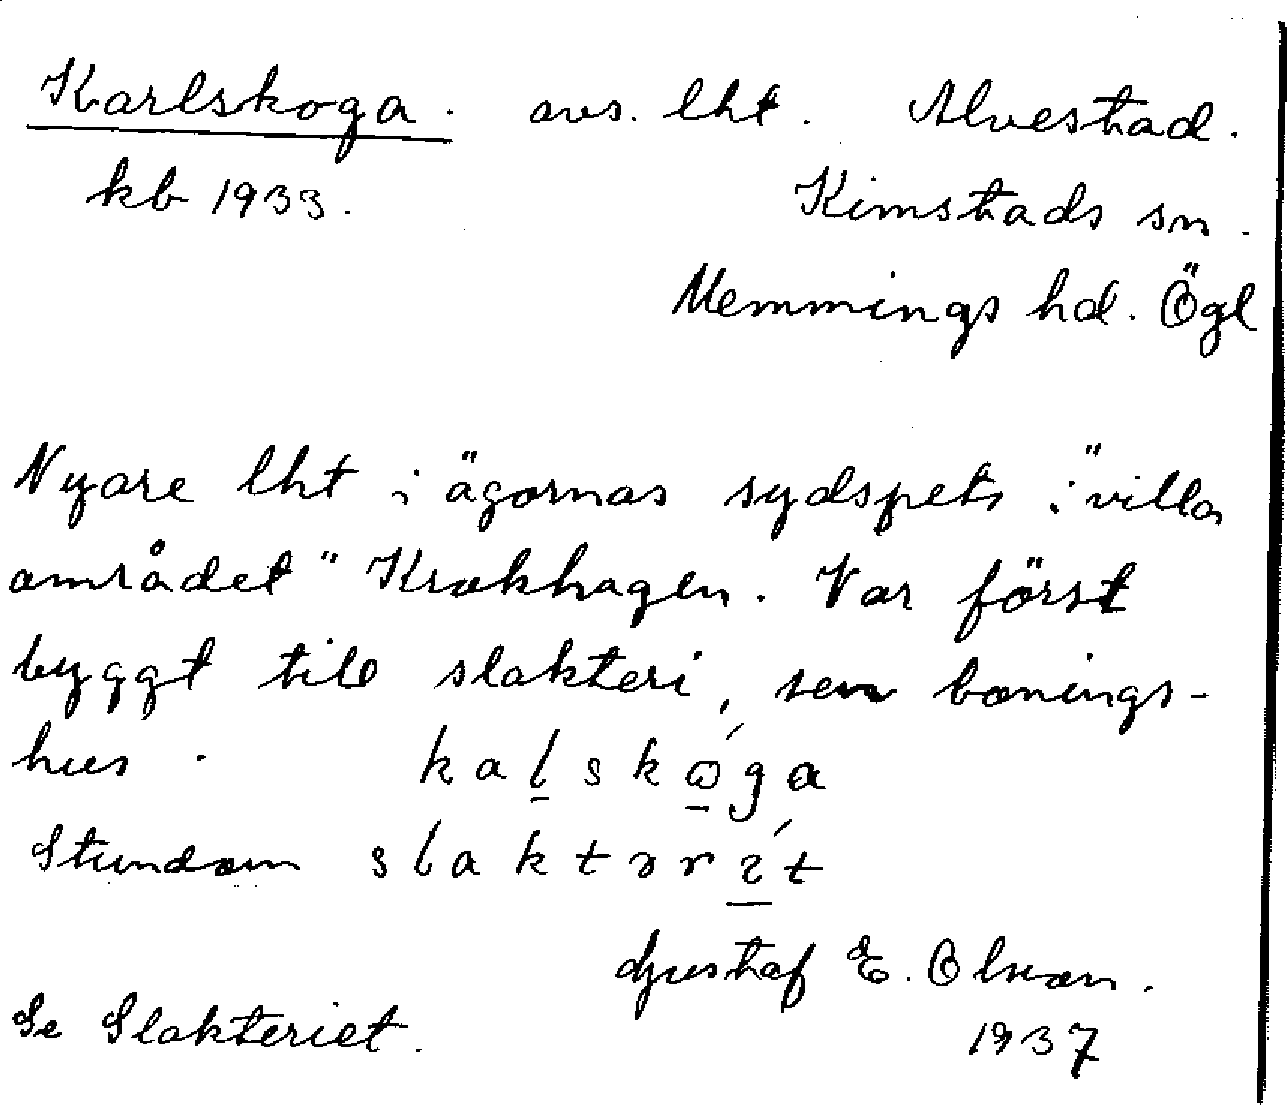 Karlskoga. avs. lht. Alvestad.
kb 1933. Kimstads sn.
Memmings hd. Ögl
Nyare lht i ägornas sydspets i "villa
området" Kråkhagen. Var först
byggt till slakteri, sen bonings-
hus. kalskǫ́ga
Stundom slaktərít
Gustaf E. Olsson.
Se Slakteriet. 1937